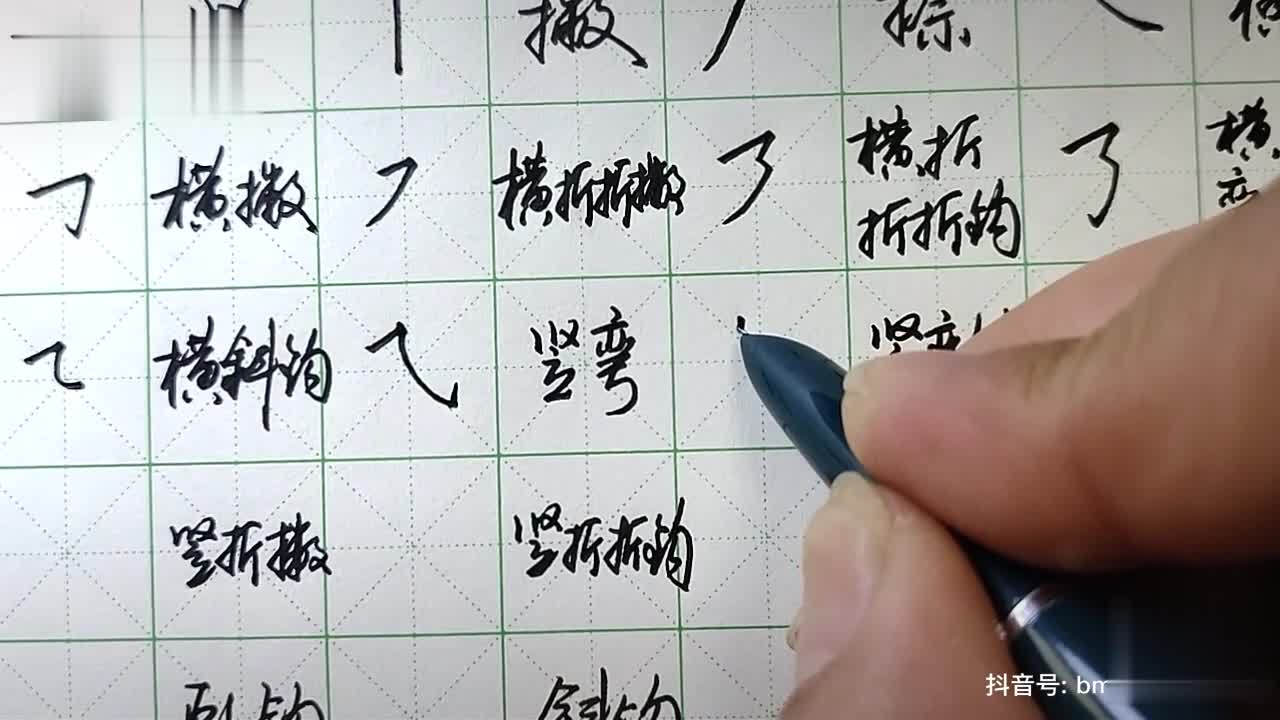 撇 丿 捺 ㇏
㇆ 横撇 ㇇ 横折折撇 ㇋ 横折折折钩 ㇡ 横
横斜钩 ⺄ 竖弯 竖弯
竖折撇 竖折折钩
卧钩 斜钩
抖音号: bm